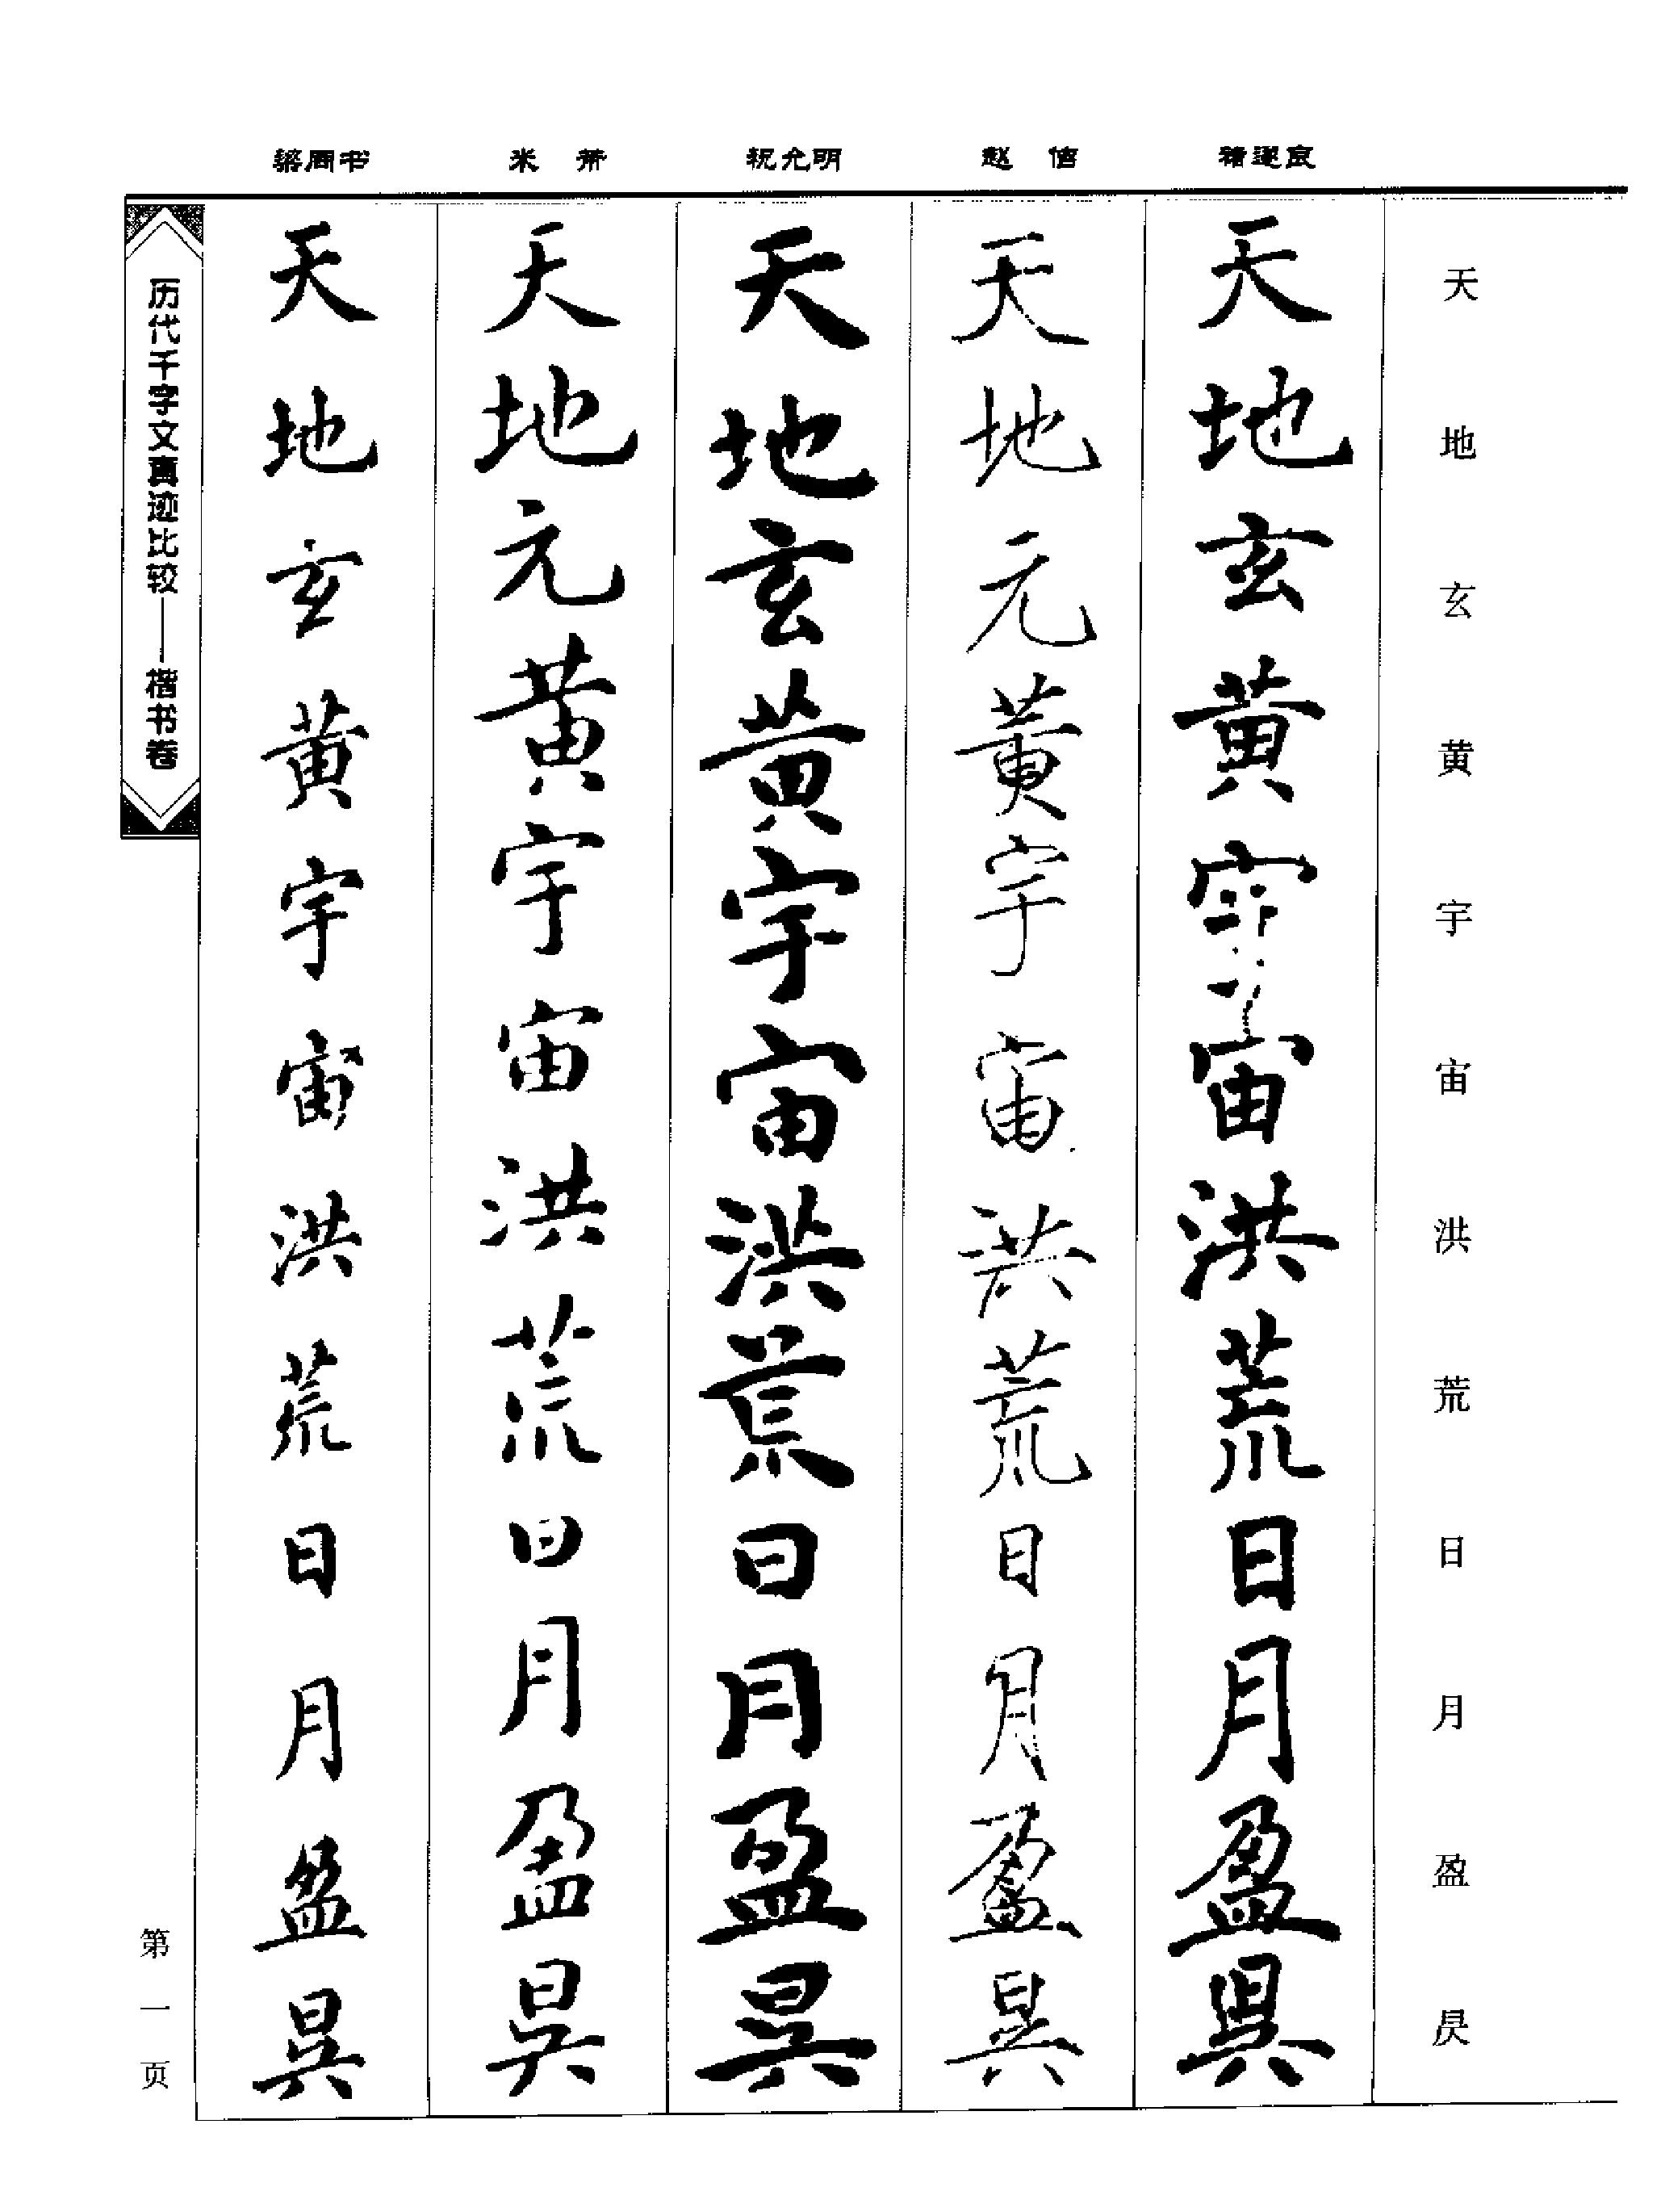 梁同书 米芾 祝允明 赵佶 褚遂良
天地玄黄宇宙洪荒日月盈昃
天地玄黄宇宙洪荒日月盈昃
天地元黄宇宙洪荒日月盈昃
天地玄黄宇宙洪荒日月盈昃
天地元黄宇宙洪荒日月盈昃
天地玄黄宇宙洪荒日月盈昃
历代千字文真迹比较——楷书卷
第一页